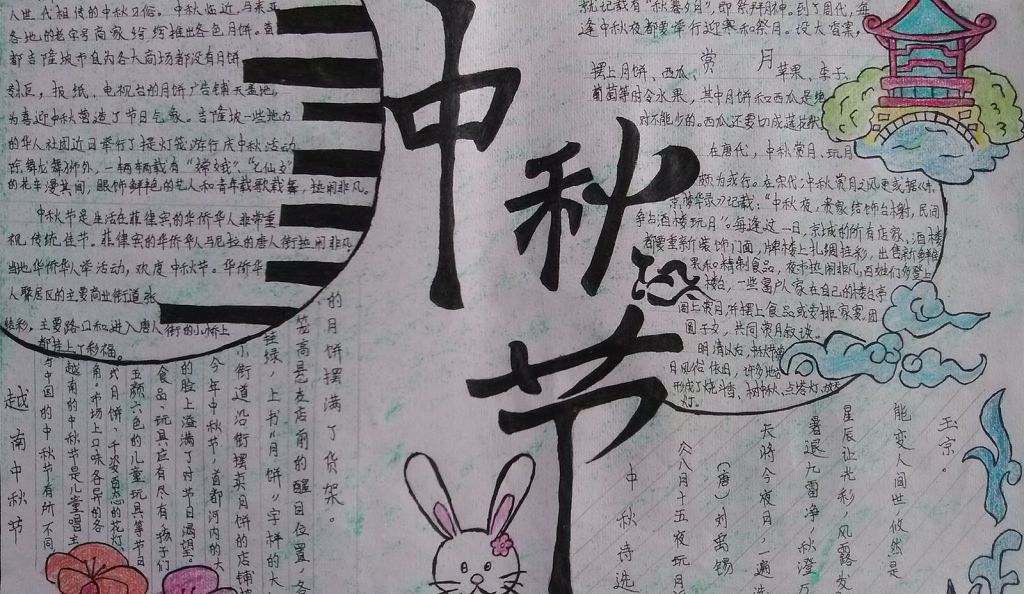 人世代相传的中秋习俗。中秋临近，马来亚
各地的老字号商家纷纷推出各色月饼。首
都吉隆坡市直内各大商场都设有月饼
专柜，报纸、电视台的月饼广告铺天盖地，
为喜迎中秋营造了节日气象。吉隆坡一些地方
的华人社团近日举行了提灯笼游行庆中秋活动
除舞龙舞狮外，一辆辆载有“嫦娥”“七仙女”
的花车漫其间，眼饰鲜艳的艺人和青年载歌载舞，热闹非凡。
中秋节是生活在菲律宾的华侨华人非常重
视传统佳节。菲律宾的华侨华人马尼拉的唐人街热闹非凡
当地华侨华人举活动，欢度中秋节。华侨华
人聚居区的主要商业街道张
结彩，主要路口和进入唐人街的小桥上
都挂上了彩福。
中秋节
就记载有“秋暮夕月”，即祭拜月神。到了周代，每
逢中秋夜都要举行迎寒和祭月。设大香案，
赏月
摆上月饼、西瓜、苹果、
葡萄等时令水果，其中月饼和西瓜是绝
对不能少的。西瓜还要切成莲花状
在唐代，中秋赏月、玩月
颇为盛行。在宋代，中秋赏月之风更盛据《东
京梦华录》记载：“中秋夜，贵家结饰台榭，民间
争占酒楼玩月”。每逢这一日，京城的所有店家、酒楼
都要重新装饰门面，牌楼上扎绸挂彩，出售新鲜
果和精制食品，夜市热闹非凡，百姓们多登上
楼台，一些富户人家在自己的楼台亭
阁上赏月，并摆上食品或安排家宴，团
圆子女，共同赏月叙谈。
明清以后，中秋节
月风俗依旧，许多地
形成了烧斗香、树中秋、点塔灯、放天
灯。
的月饼摆满了货架。
签高悬在店前的醒目位置，各
挂绿，上书“月饼”字样的大
小街道沿街摆卖月饼的店铺
今年中秋节，首都河内的大
的脸上溢满了对节日渴望。
食品、玩具应有尽有，孩子们
五颜六色的儿童玩具等节日
式月饼、千姿百态的花灯、
角。市场上口味各异的各
越南的中秋节是儿童唱主
与中国的中秋节有所不同
越南中秋节
玉京。
能变人间世，攸然是
星辰让光彩，风露发
暑退九霄净，秋澄
天将今夜月，一遍洗
（唐）刘禹锡
八月十五夜玩月
中秋诗选